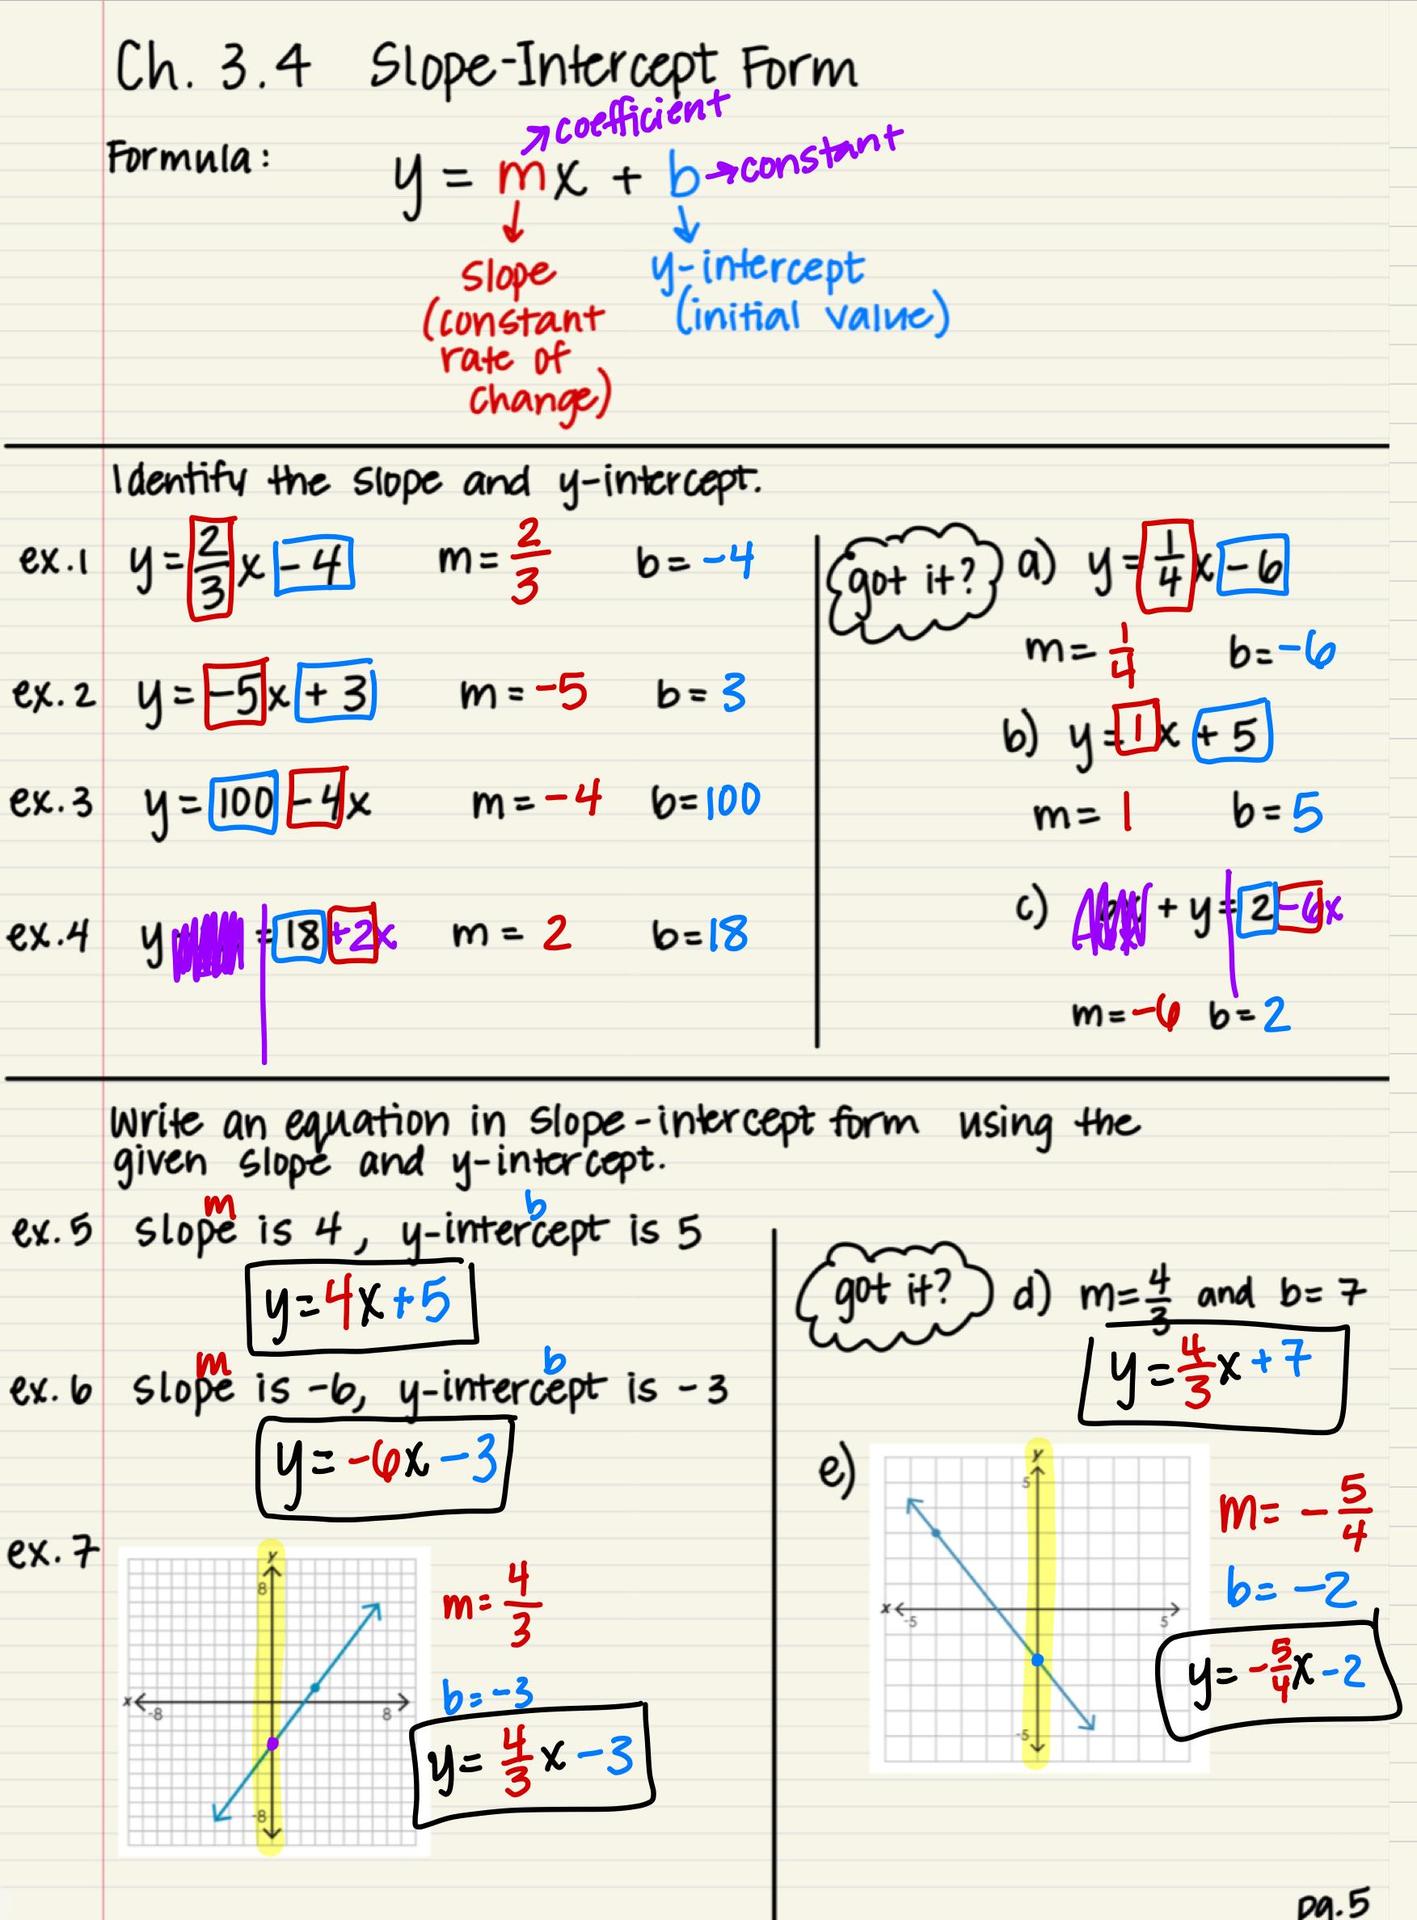 Ch. 3.4 Slope-Intercept Form
coefficient
Formula: y = mx + b → constant
slope
(constant
rate of
change)
y-intercept
(initial value)
Identify the slope and y-intercept.
ex.1 y = 2/3 x - 4 m = 2/3 b = -4
ex.2 y = -5x + 3 m = -5 b = 3
ex.3 y = 100 - 4x m = -4 b = 100
ex.4 y = 18 + 2x m = 2 b = 18
got it? a) y = 1/4 x - 6
m = 1/4 b = -6
b) y = 1x + 5
m = 1 b = 5
c) + y = 2 - 6x
m = -6 b = 2
Write an equation in slope-intercept form using the
given slope and y-intercept.
m b
ex.5 slope is 4, y-intercept is 5
y = 4x + 5
m b
ex.6 slope is -6, y-intercept is -3
y = -6x - 3
ex.7
y
8
x -8 8
-8
m = 4/3
b = -3
y = 4/3 x - 3
got it? d) m = 4/3 and b = 7
y = 4/3 x + 7
e)
y
5
x -5 5
-5
m = -5/4
b = -2
y = -5/4 x - 2
pg.5